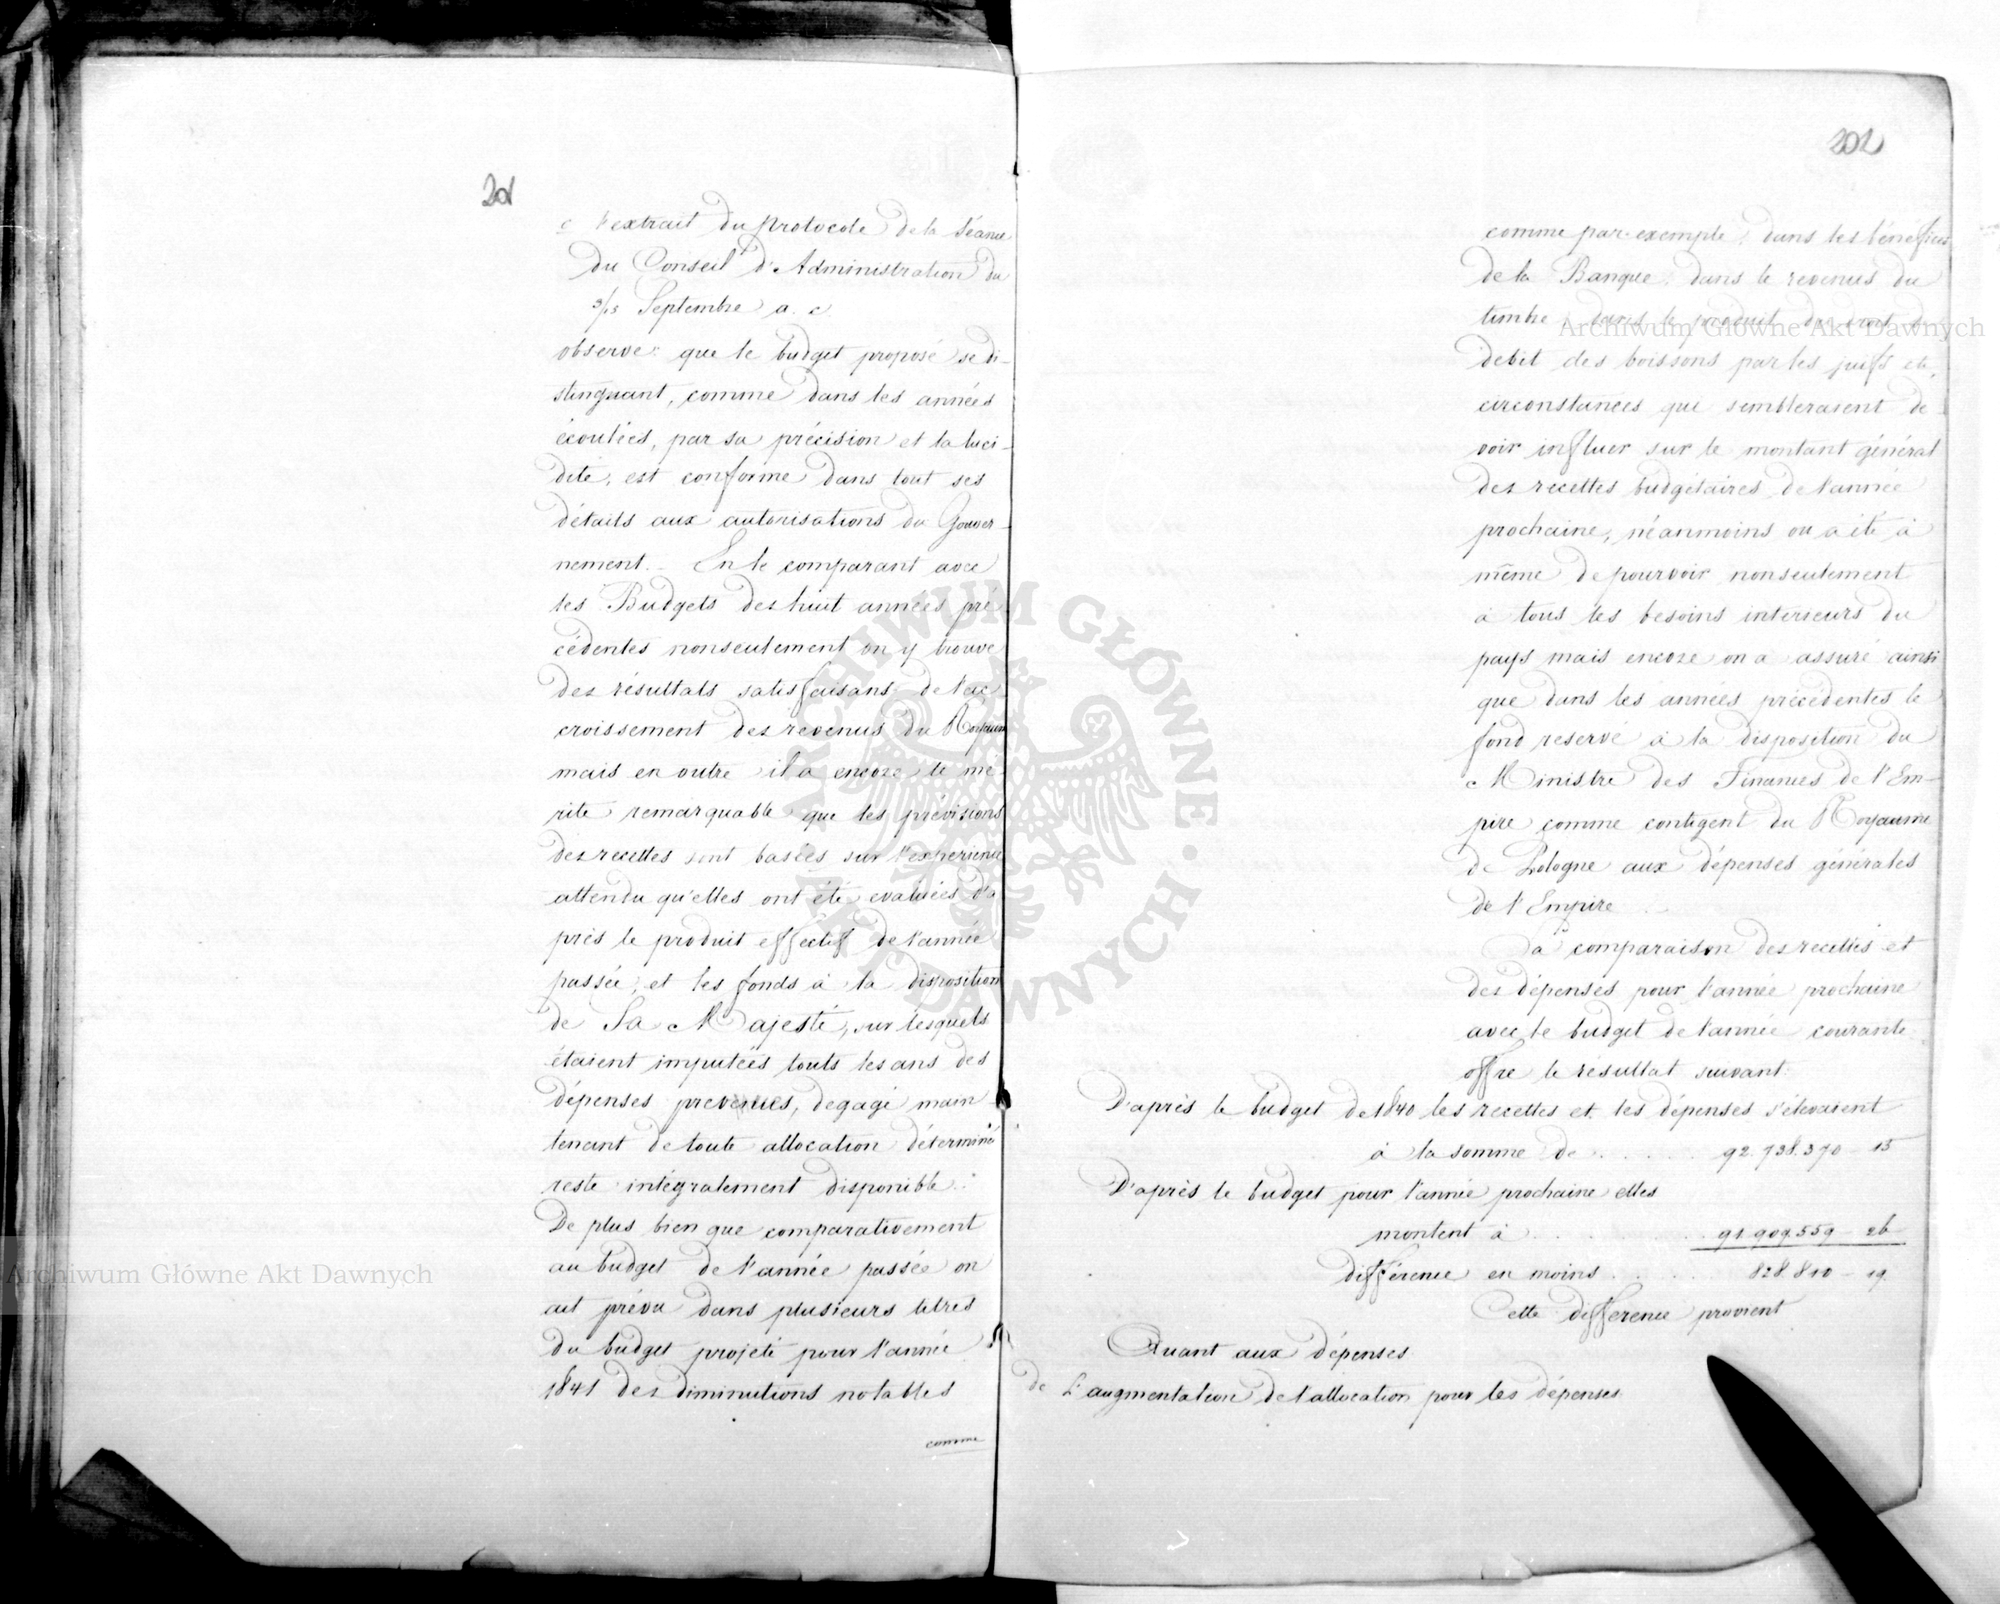 201
c l'extrait du Protocole de la Séance
du Conseil d'Administration du
3/15 Septembre a. c.
observe: que le budget proposé se di-
stinguant, comme dans les années
écoulées, par sa précision et la luci-
dité, est conforme dans tout ses
détails aux autorisations du Gouver-
nement. - En le comparant avec
les Budgets des huit années pré
cédentes nonseulement on y trouve
des résultats satisfaisans de l'ac
croissement des revenus du Royaume
mais en outre il a encore le mé
rite remarquable que les prévisions
des recettes sont basées sur l'experience
attendu qu'elles ont été evaluées d'a
près le produit effectif de l'année
passée, et les fonds à la disposition
de Sa Majesté, sur lesquels
étaient imputées touts les ans des
dépenses prevenues, degagé main
tenant de toute allocation déterminé
reste intégralement disponible.
De plus bien que comparativement
au budget de l'année passée on
ait prévu dans plusieurs titres
du budget projeté pour l'année
1841 des diminutions notables
comme
202
comme par exemple: dans les bénéfices
de la Banque, dans le revenus du
timbre, dans le produit du droit de
debit des boissons par les juifs etc,
circonstances qui sembleraient de
voir influer sur le montant général
des recettes budgétaires de l'année
prochaine, néanmoins on a été à
même de pourvoir nonseulement
à tous les besoins interieurs du
pays mais encore on a assuré ainsi
que dans les années précédentes le
fond reservé à la disposition du
Ministre des Finances de l'Em-
pire comme contigent du Royaume
de Pologne aux dépenses générales
de l'Empire
La comparaison des recettes et
des dépenses pour l'année prochaine
avec le budget de l'année courante
offre le résultat suivant:
D'après le budget de 1840 les recettes et les dépenses s'élevaient
à la somme de . . . . . 92.738.370 - 15
D'après le budget pour l'année prochaine elles
montent à . . . . . 91.909.559 - 26
différence en moins . . . . 828.810 - 19
Cette difference provient
Quant aux dépenses
de L'augmentation de l'allocation pour les dépenses
Archiwum Główne Akt Dawnych
Archiwum Główne Akt Dawnych
ARCHIWUM GŁÓWNE AKT DAWNYCH